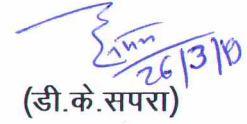 26/3/19
(डी.के.सपरा)